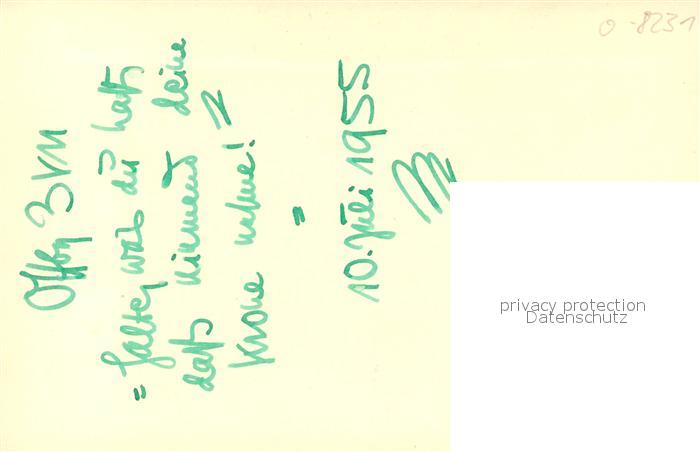 Offbg 3 V 11
= halte, was du hast,
daß niemand deine
Krone nehme!
=
10. Juli 1955
0-8231
privacy protection
Datenschutz